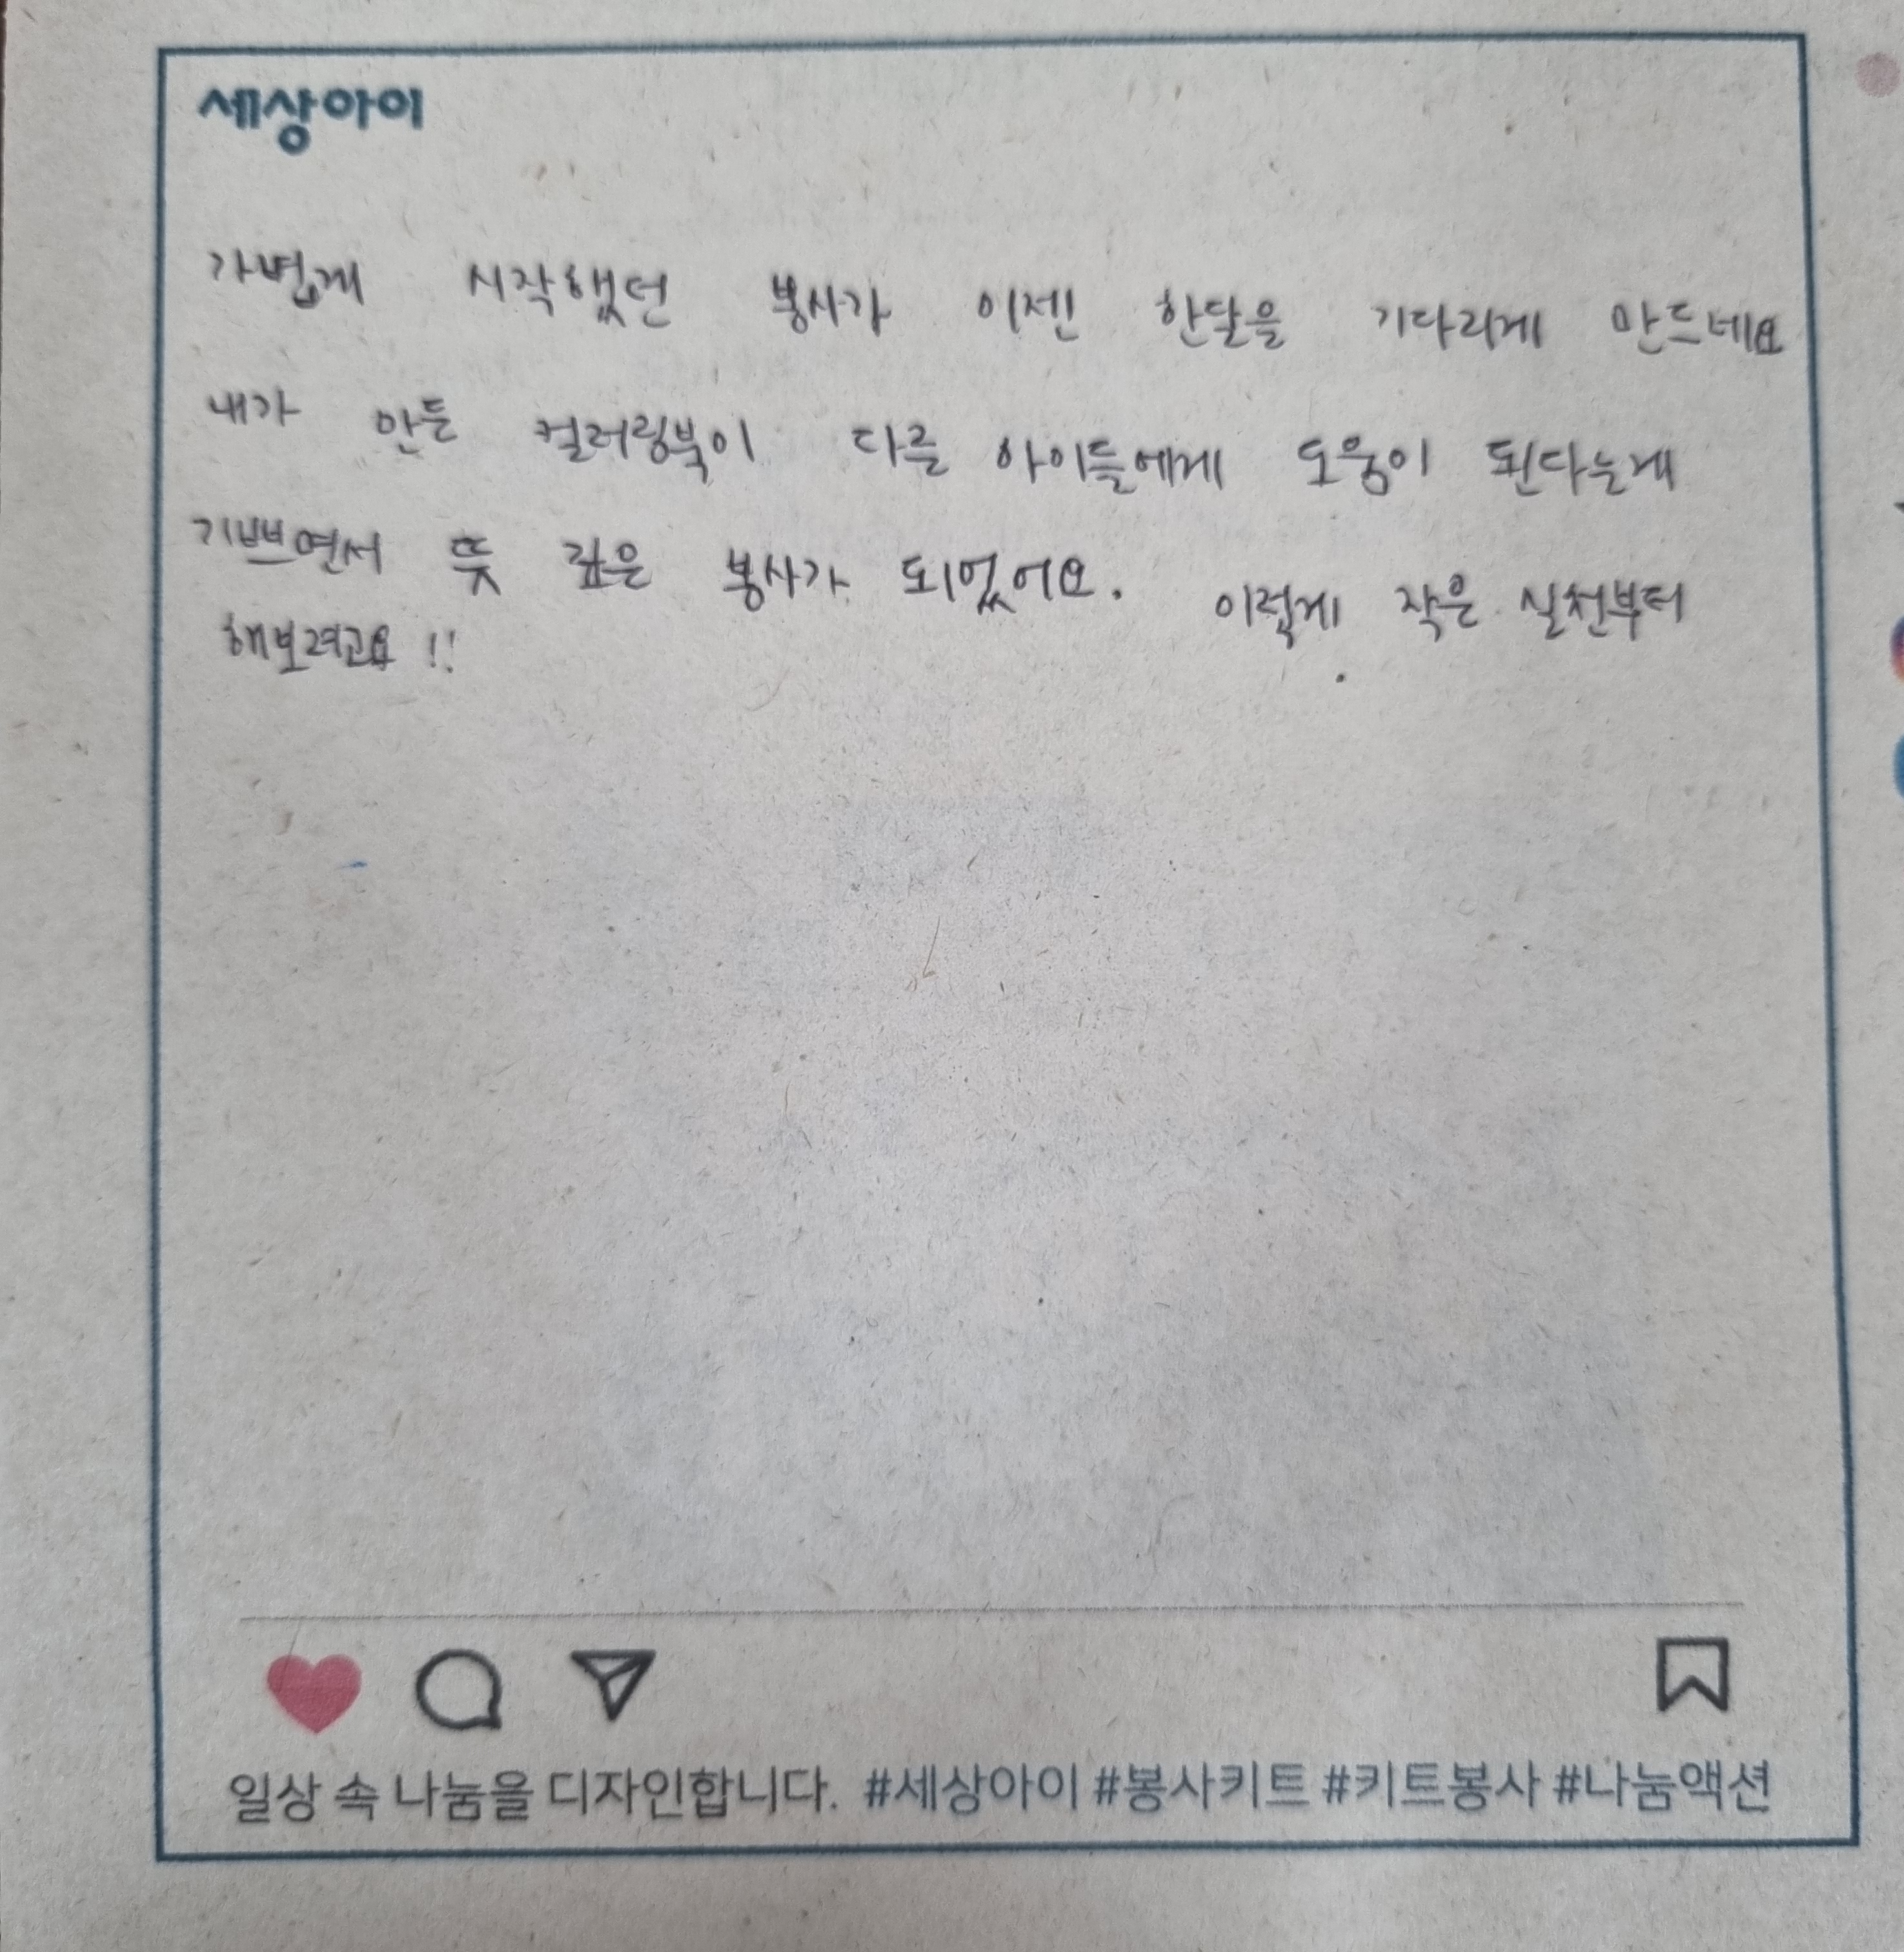 세상아이
가볍게 시작했던 봉사가 이젠 한달을 기다리게 만드네요
내가 만든 컬러링북이 다른 아이들에게 도움이 된다는게
기쁘면서 뜻 깊은 봉사가 되었어요. 이렇게 작은 실천부터
해보려고요 !!
일상 속 나눔을 디자인합니다. #세상아이 #봉사키트 #키트봉사 #나눔액션